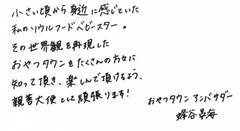 小さい頃から身近に感じていた
私のソウルフードベビースター。
その世界観を再現した
おやつタウンをたくさんの方々に
知って頂き、楽しんで頂けるよう、
親善大使として頑張ります!
おやつタウン アンバサダー
蜂谷晏海